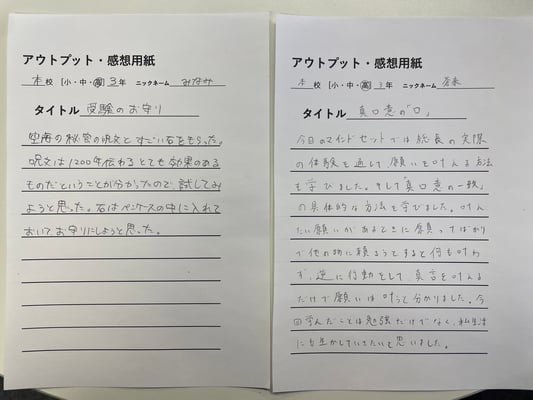 アウトプット・感想用紙
本校 [小・中・高] 3年 ニックネーム みなみ
タイトル 受験のお守り
空海の秘密の呪文とすごい石をもらった。
呪文は1200年伝わるとても効果のある
ものだということが分かったので、試してみ
ようと思った。石はペンケースの中に入れて
おいてお守りにしようと思った。
アウトプット・感想用紙
本校 [小・中・高] 3年 ニックネーム
タイトル 真口意の「口」
今日のマインドセットでは総長の実際
の体験を通して願いを叶える方法
を学びました。そして「真口意の一致」
の具体的な方法も学びました。叶え
たい願いがあるときに願ってばかり
で他の物に頼ろうとすると何も叶わ
ず、逆に行動をして、真言を叶える
だけで願いは叶うと分かりました。今
回学んだことは勉強だけでなく、私生活
にも生かしていきたいと思いました。